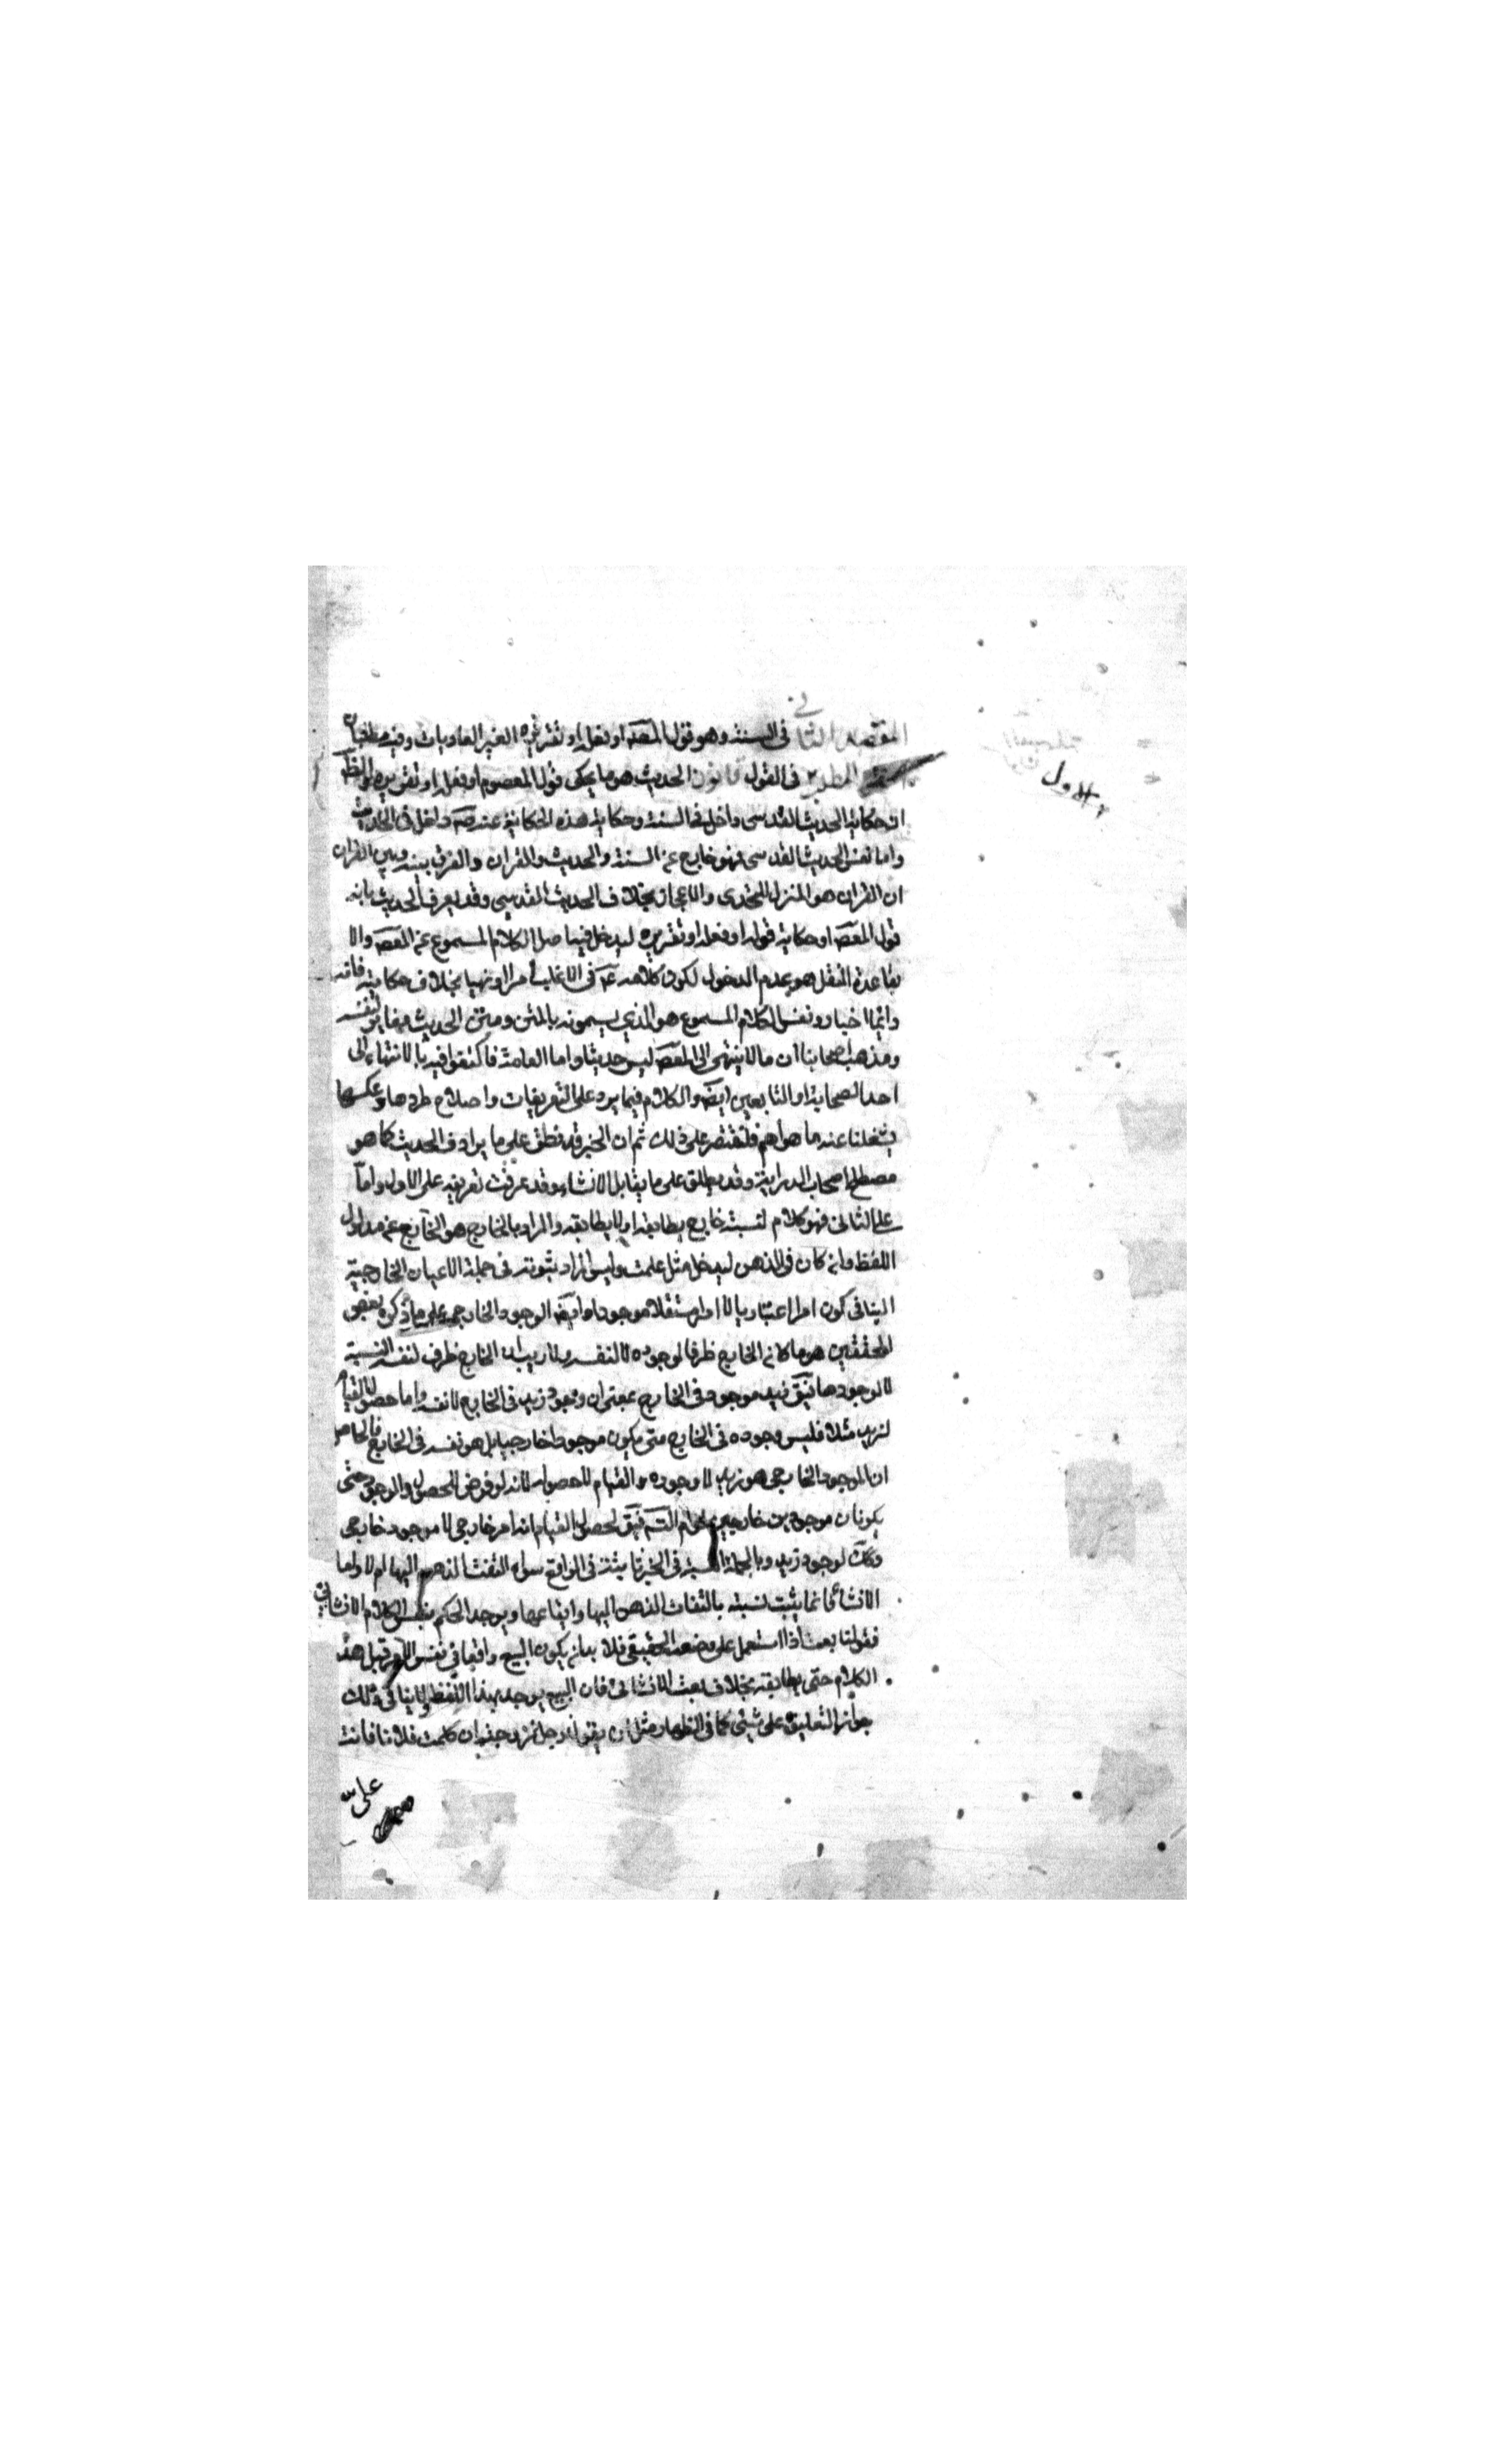 المقصد الثانى فى السنة وهو قول المعصۀ او فعله او تقريره الغير العاديات وفيه مطلبان
المطلب فى القول قانون الحديث هو ما يحكى قول المعصوم او فعله او تقريره والظۀ
ان حكاية الحديث القدسى داخل فى السنة وحكاية هذه الحكاية عنه صۀ داخل فى الحديث
واما نفس الحديث القدسى فهو خارج عن السنة والحديث والقران والفرق بينه وبين القران
ان القران هو المنزل للتحدى والاعجاز بخلاف الحديث القدسى وقد يعرف الحديث بانه
قول المعصۀ او حكاية قوله او فعله او تقريره ليدخل فيه اصل الكلام المسموع عن المعصۀ والا
بقاعدة النقل هو عدم الدخول لكون كلامه عۀ فى الاغلب امرا او نهيا بخلاف حكايته فانه
دائما اخبار ونفس الكلام المسموع هو الذى يسمونه بالمتن ومتن الحديث مغاير لنفسه
ومذهب اصحابنا ان ما لا ينتهى الى المعصۀ ليس حديثا واما العامة فاكتفوا فيه بالانتهاء الى
احد الصحابة او التابعين ايضۀ والكلام فيما يرد على التعريفات واصلاح طردها وعكسها
يشغلنا عنه ما هو اهم فلنقتصر على ذلك ثم ان الخبر قد يطلق على ما يرادف الحديث كما هو
مصطلح اصحاب الدراية وقد يطلق على ما يقابل الانشاء وقد عرفت تعريفه على الاول واما
على الثانى فهو كلام لنسبته خارج يطابقه او لا يطابقه والمراد بالخارج هو الخارج عن مدلول
اللفظ وان كان فى الذهن ليدخل مثل علمت وليس المراد ثبوته فى جملة الاعيان الخارجية
لينافى كون امرا اعتباريا لا امرا مستقلا موجودا وايضۀ الوجود الخارجى على ما ذكره بعض
المحققين هو ما كان الخارج ظرفا لوجوده لا لنفسه ولا ريب ان الخارج ظرف لنفس النسبة
لا لوجودها فيۀ زيد موجود فى الخارج بمعنى ان وجود زيد فى الخارج لا نفسه واما حصول القيام
لزيد مثلا فليس وجوده فى الخارج حتى يكون موجودا خارجيا بل هو نفسه فى الخارج فالحاصل
ان الموجود الخارجى هو زيد لا وجوده والقيام لا حصوله لانه لو فرض الحصول والوجود حتى
يكونان موجودين خارجيين لزم التسۀ فيۀ لحصول القيام انه امر خارجى لا موجود خارجى
وكك لوجود زيد وبالجملة النسبة فى الخبر ثابتة فى الواقع سواء التفت الذهن اليها ام لا واما
الانشاء فانما يثبت نسبته بالتفات الذهن اليها وايقاعها ويوجد الحكم بنفس الكلام الانشائى
فقولنا بعت اذا استعمل على وضعه الحقيقى فلا بد ان يكون البيع واقعا فى نفس الامر قبل هذا
الكلام حتى يطابقه بخلاف بعت الانشائى فان البيع يوجد بهذا اللفظ ولا ينافى ذلك
جواز التعليق على شىء كما فى الظهار مثل ان يقول الرجل لزوجته ان كلمت فلانا فانت
على
الاول